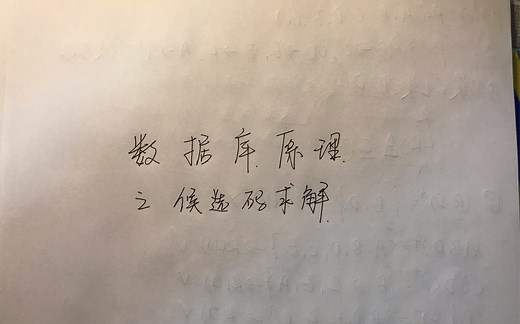 数据库原理
之候选码求解